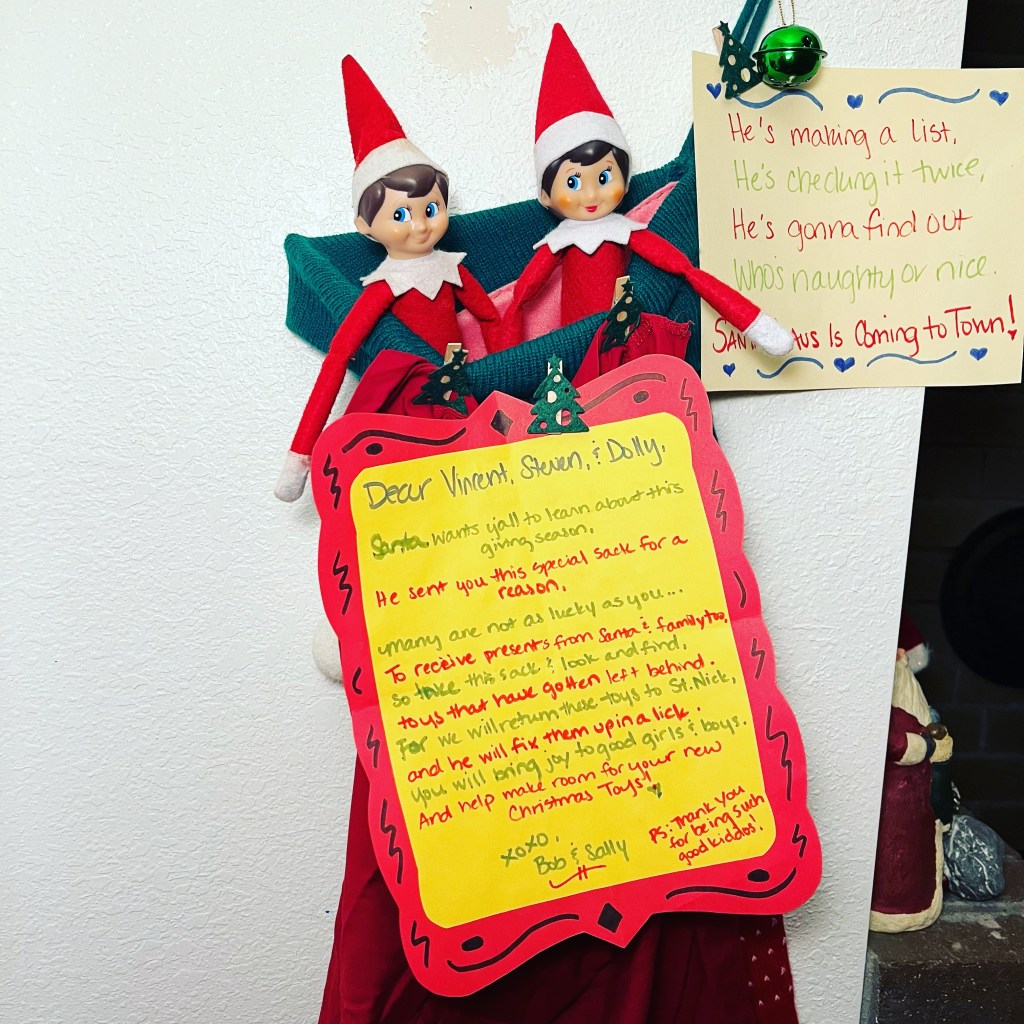 He's making a list,
He's checking it twice,
He's gonna find out
Who's naughty or nice.
Santa aus Is Coming to Town!
Dear Vincent, Steven, & Dolly,
Santa wants y'all to learn about this
giving season.
He sent you this special sack for a
reason.
many are not as lucky as you...
To receive presents from Santa & family too,
so take this sack & look and find,
toys that have gotten left behind.
For we will return these toys to St. Nick,
and he will fix them up in a lick.
You will bring joy to good girls & boys.
And help make room for your new
Christmas Toys!
xoxo,
Bob & Sally
PS: Thank you
for being such
good kiddos!